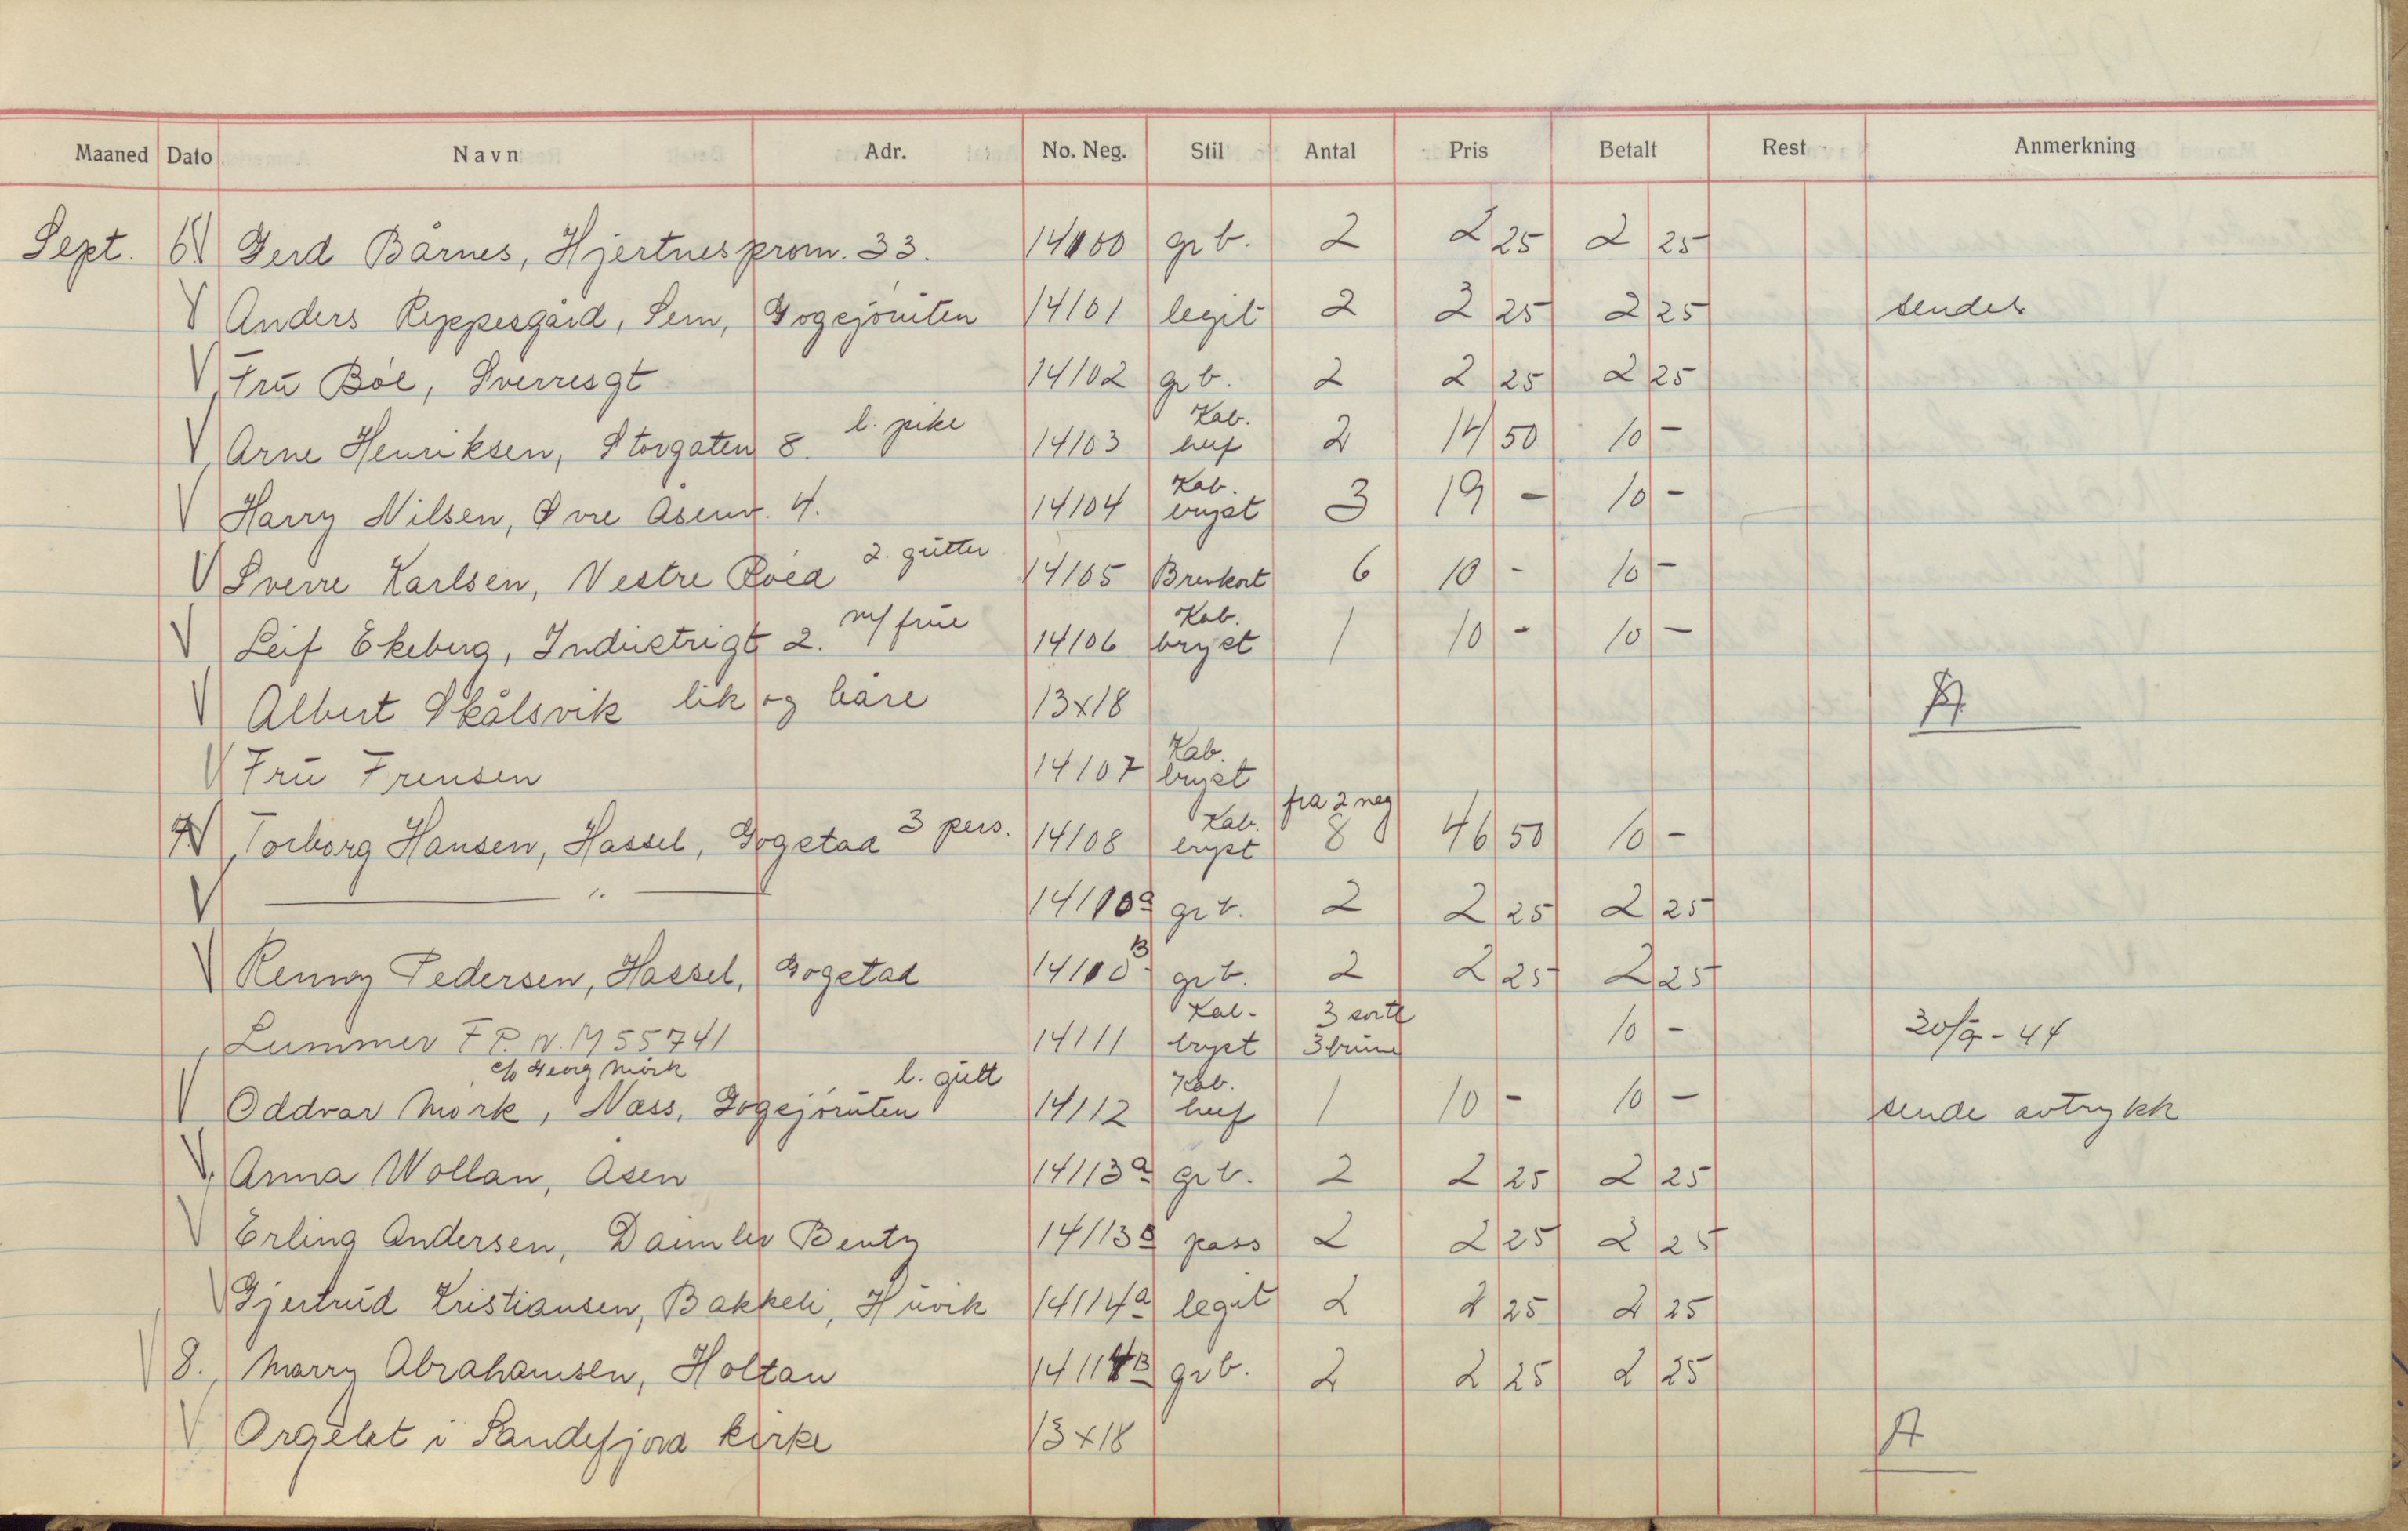 Maaned Dato Navn Adr. No. Neg. Stil Antal Pris Betalt Rest Anmerkning
Sept. 6 V Gerd Bårnes, Hjertnesprom. 33. 14100 grb. 2 2 25 2 25
V Anders Reppesgård, Sem, Gogsjøruten 14101 legit 2 2 25 2 25 sendes
V Frū Bøe, Sverresgt 14102 grb. 2 2 25 2 25
V Arne Henriksen, Storgaten 8. l. pike 14103 Kab. heef 2 14 50 10 -
V Harry Nilsen, Øvre Åsenv. 4. 14104 Kab. bryst 3 19 - 10 -
V Sverre Karlsen, Vestre Røed 2. gūtter 14105 Brevkort 6 10 - 10 -
V Leif Ekeberg, Indūstrigt 2. m/ frūe 14106 Kab. bryst 1 10 - 10 -
V Albert Skålsvik lik og båre 13x18 A
V Frū Frensen 14107 Kab. bryst
7 V Torborg Hansen, Hassel, Gogstad 3 pers. 14108 Kab. bryst fra 2 neg 8 46 50 10 -
V — " — 14110a grb. 2 2 25 2 25
V Renny Pedersen, Hassel, Gogstad 14110B grb. 2 2 25 2 25
Lummer F.P.N. M 55741 14111 Kab. bryst 3 sorte 3 brūne 10 - 30/9 - 44
c/o Georg Mørk
V Oddvar Mørk, Næss, Gogsjørūten l. gūtt 14112 Kab. heef 1 10 - 10 - sende avtrykk
V Anna Wollan, Åsen 14113a grb. 2 2 25 2 25
V Erling Andersen, Daimler Bentz 14113B pass 2 2 25 2 25
V Gjertrūd Kristiansen, Bakkeli, Hūvik 14114a legit 2 2 25 2 25
V 8. Marry Abrahamsen, Holtan 14114B grb. 2 2 25 2 25
V Orgelet i Sandefjord kirke 13x18 A